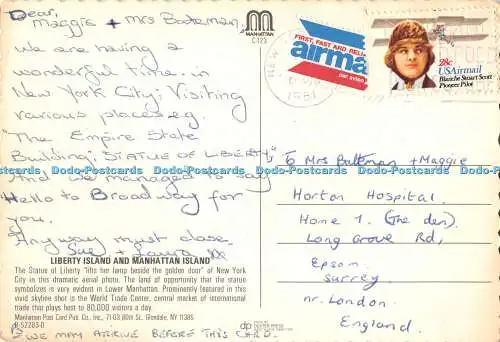 Dear,
Maggie + Mrs Bateman,
we are having a
wonderful time in
New York City; Visiting
various places eg.
"The Empire State
Building; STATUE OF LIBERTY"
And we managed to say
Hello to Broadway for
you.
Anyway must close.
Sue + Laura
MANHATTAN
C123
FIRST, FAST AND RELI
airma
par avion
1981
28c
USAirmail
Blanche Stuart Scott
Pioneer Pilot
To Mrs Bateman + Maggie
Horton Hospital.
Home 1. (The den).
Long Grove Rd,
Epsom
Surrey
nr. London.
England.
Dodo-Postcards Dodo-Postcards Dodo-Postcards Dodo-Postcards Dodo-Postcards
LIBERTY ISLAND AND MANHATTAN ISLAND
The Statue of Liberty "lifts her lamp beside the golden door" of New York
City in this dramatic aerial photo. The land of opportunity that the statue
symbolizes is very evident in Lower Manhattan. Prominently featured in this
vivid skyline shot is the World Trade Center, central market of international
trade that plays host to 80,000 visitors a day.
Manhattan Post Card Pub. Co., Inc., 71-03 80th St., Glendale, NY 11385
B-52283-D
dp
WE MAY ARRIVE BEFORE THIS CARD.